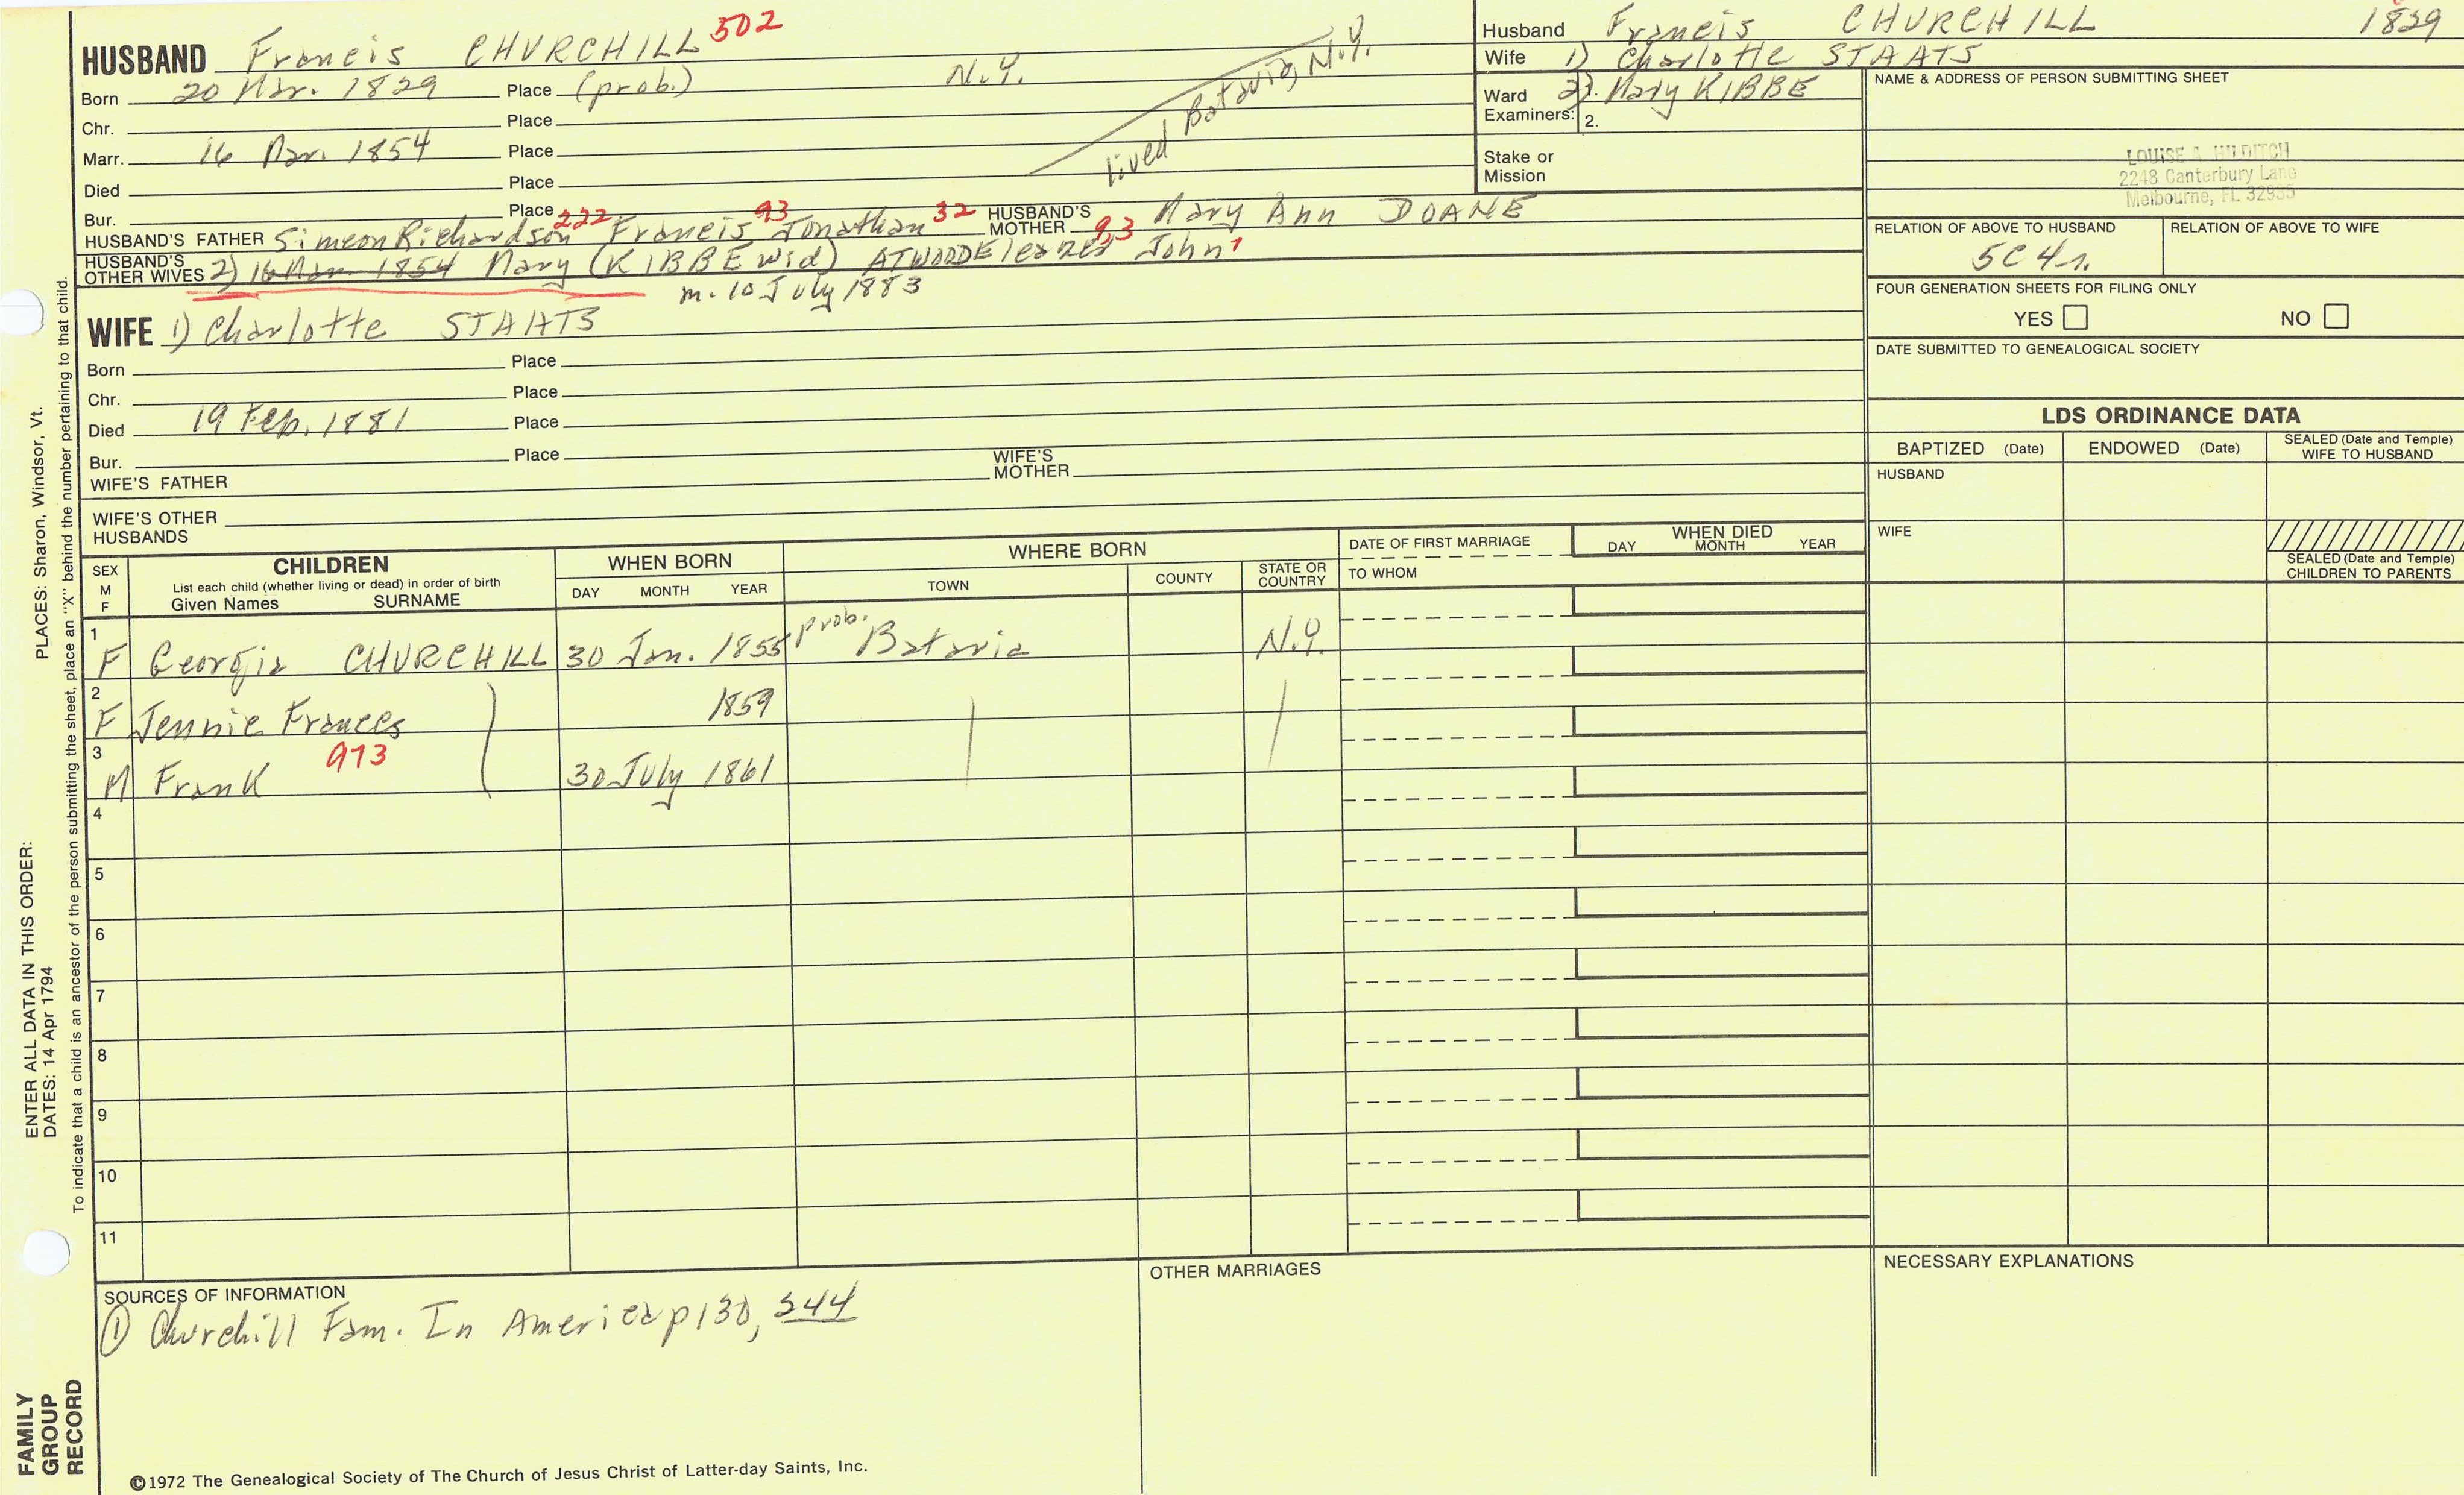 HUSBAND Francis CHURCHILL 502
Born 20 Mar. 1829 Place (prob.) N.Y.
Chr. Place
Marr. 16 Mar. 1854 Place
Died Place
Bur. Place
lived Batavia, N.Y.
HUSBAND'S FATHER Simeon Richardson 222 Francis 93 Jonathan 32 HUSBAND'S MOTHER Mary Ann DOANE
HUSBAND'S OTHER WIVES 2) 16 Mar. 1854 Mary (KIBBE wid) ATWOOD Eleazer 9,3 John 1
m. 10 July 1883
WIFE 1) Charlotte STAATS
Born Place
Chr. Place
Died 19 Feb. 1881 Place
Bur. Place
WIFE'S FATHER WIFE'S MOTHER
WIFE'S OTHER HUSBANDS
Husband Francis CHURCHILL 1829
Wife 1) Charlotte STAATS
Ward Examiners: 1. 2) Mary KIBBE
2.
Stake or Mission
NAME & ADDRESS OF PERSON SUBMITTING SHEET
LOUISE A HILDITCH
2248 Canterbury Lane
Melbourne, FL 32935
RELATION OF ABOVE TO HUSBAND RELATION OF ABOVE TO WIFE
5C4r.
FOUR GENERATION SHEETS FOR FILING ONLY
YES NO
DATE SUBMITTED TO GENEALOGICAL SOCIETY
LDS ORDINANCE DATA
BAPTIZED (Date) ENDOWED (Date) SEALED (Date and Temple) WIFE TO HUSBAND
HUSBAND
WIFE
SEALED (Date and Temple) CHILDREN TO PARENTS
SEX M F CHILDREN List each child (whether living or dead) in order of birth Given Names SURNAME WHEN BORN DAY MONTH YEAR WHERE BORN TOWN COUNTY STATE OR COUNTRY DATE OF FIRST MARRIAGE TO WHOM WHEN DIED DAY MONTH YEAR
1 F Georgia CHURCHILL 30 Jan. 1855 prob. Batavia N.Y.
2 F Jennie Frances 1859
3 M Frank 973 30 July 1861
4
5
6
7
8
9
10
11
SOURCES OF INFORMATION
① Churchill Fam. In America p130, 244
OTHER MARRIAGES
NECESSARY EXPLANATIONS
©1972 The Genealogical Society of The Church of Jesus Christ of Latter-day Saints, Inc.
FAMILY GROUP RECORD
ENTER ALL DATA IN THIS ORDER:
DATES: 14 Apr 1794 PLACES: Sharon, Windsor, Vt.
To indicate that a child is an ancestor of the person submitting the sheet, place an "X" behind the number pertaining to that child.